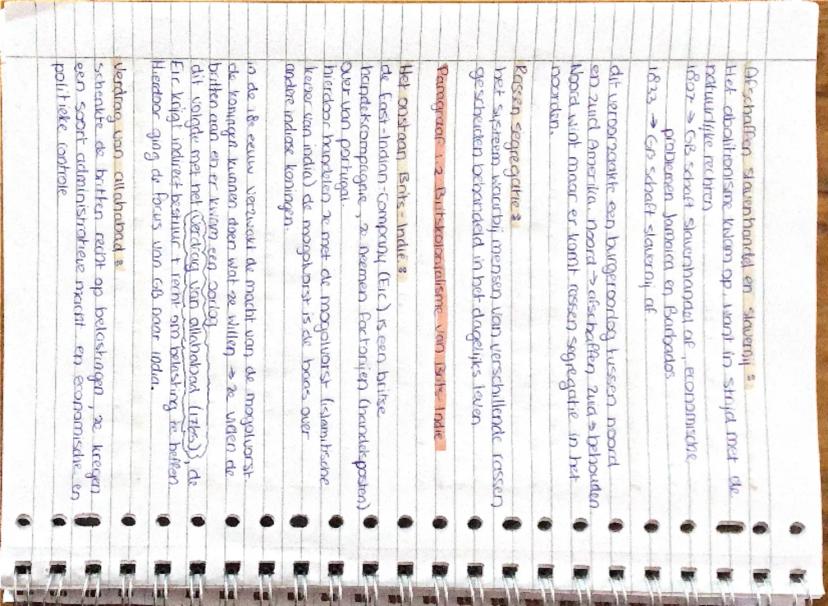 Afschaffen slavenhandel en slavernij:
Het abolitionisme kwam op, want in strijd met de
natuurlijke rechten
1807 → GB schaft slavenhandel af, economische
problemen Jamaica en Barbados
1833 → GB schaft slavernij af
dit veroorzaakte een burgeroorlog tussen noord
en zuid Amerika. Noord → afschaffen, zuid → behouden
Noord wint maar er komt rassen segregatie in het
noorden.
Rassen segregatie:
het systeem waarbij mensen van verschillende rassen
gescheiden behandeld in het dagelijks leven
Paragraaf 1.2 Britskolonialisme van Brits-Indie
Het onstaan Brits-Indie:
de East-Indian-Company (Eic) is een britse
handelscompagnie, ze neemen factorijen (handelsposten)
over van portugal.
hierdoor handelen ze met de mogolvorst (islamitische
keizer van india) de mogolvorst is de baas over
andere indiase koningen.
in de 18e eeuw verzwakt de macht van de mogolvorst.
de koningen kunnen doen wat ze willen → ze vielen de
britten aan en er kwam een oorlog
dit vainde met het (Verdrag van allahabad (1765)), de
Eic krijgt indirect bestuur + recht om belasting te heffen.
Hierdoor ging de focus van GB naar India.
Verdrag van allahabad:
schenkte de britten recht op belastingen, ze kregen
een soort administratieve macht en economische en
politieke controle